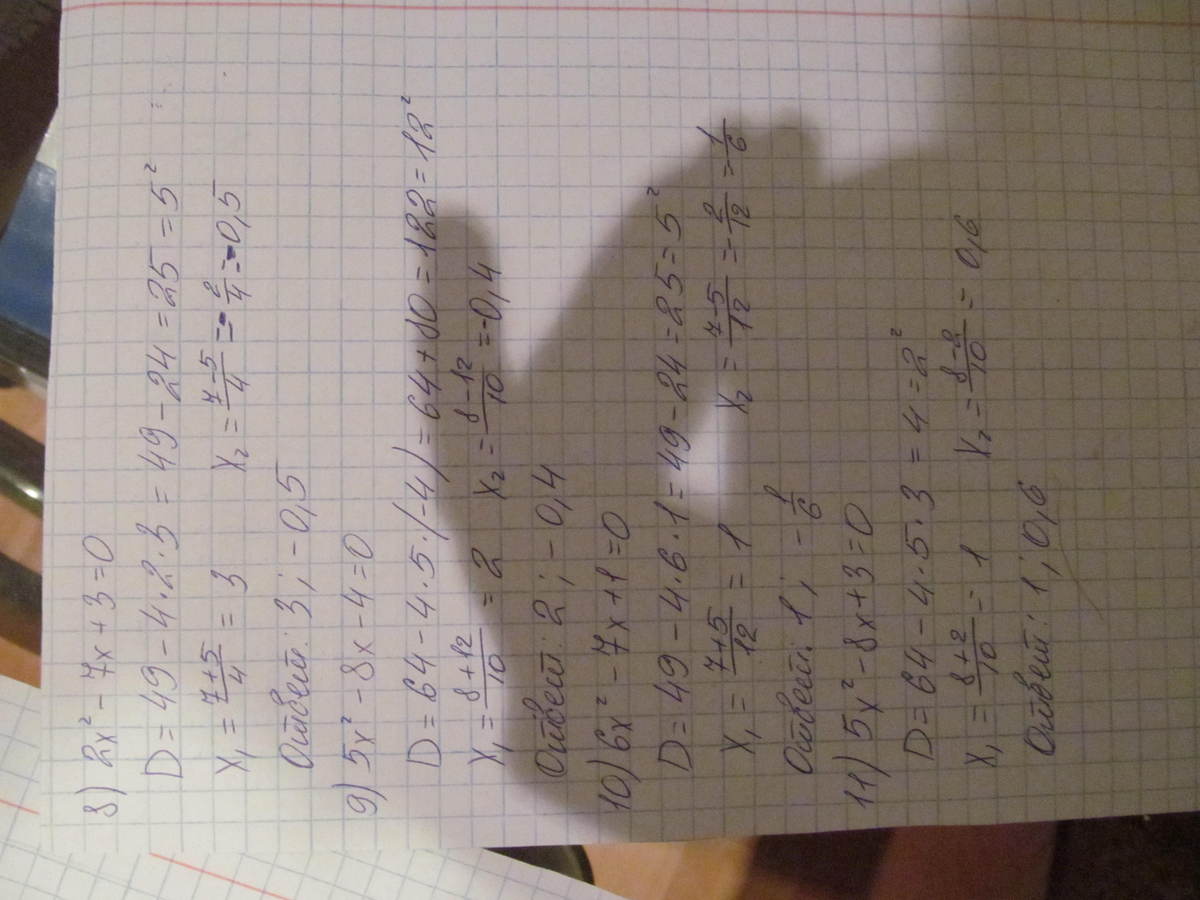 8) 2x² - 7x + 3 = 0
D = 49 - 4·2·3 = 49 - 24 = 25 = 5²
x₁ = (7+5)/4 = 3 x₂ = (7-5)/4 = -2/4 = -0,5
Ответ: 3; -0,5
9) 5x² - 8x - 4 = 0
D = 64 - 4·5·(-4) = 64 + 80 = 122 = 12²
x₁ = (8+12)/10 = 2 x₂ = (8-12)/10 = -0,4
Ответ: 2; -0,4
10) 6x² - 7x + 1 = 0
D = 49 - 4·6·1 = 49 - 24 = 25 = 5²
x₁ = (7+5)/12 = 1 x₂ = (7-5)/12 = -2/12 = -1/6
Ответ: 1; -1/6
11) 5x² - 8x + 3 = 0
D = 64 - 4·5·3 = 4 = 2²
x₁ = (8+2)/10 = 1 x₂ = (8-2)/10 = 0,6
Ответ: 1; 0,6